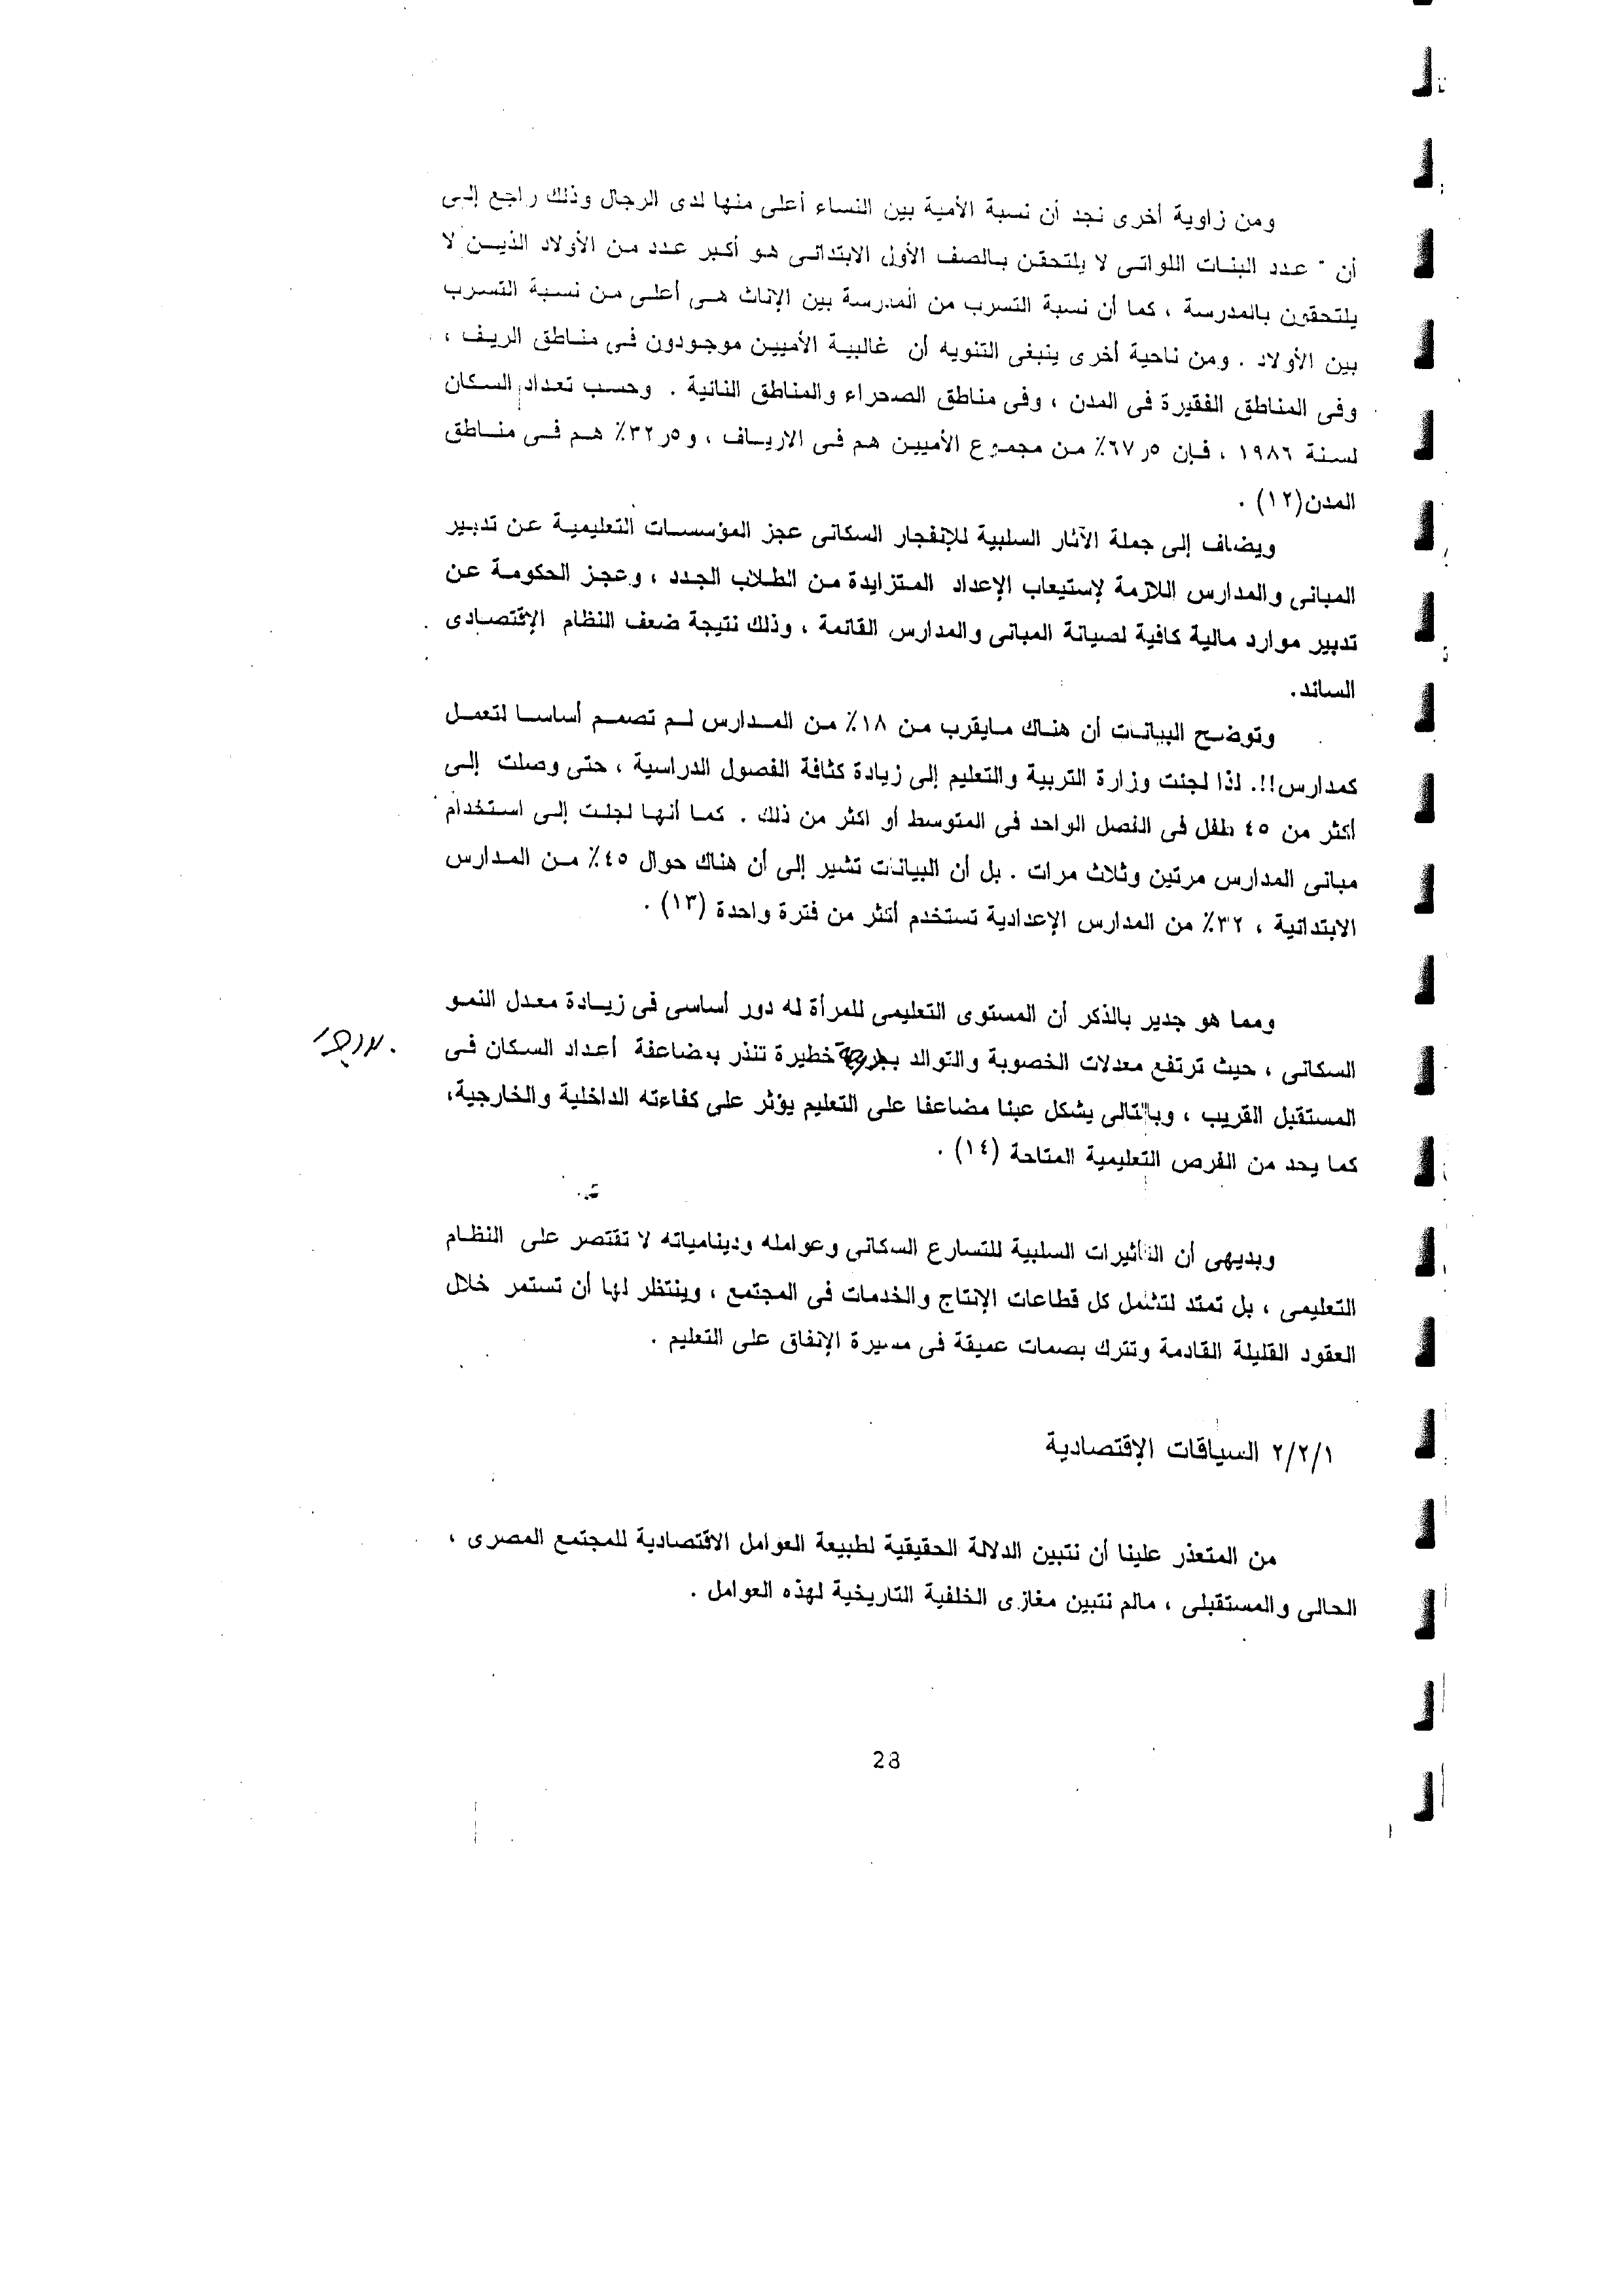 ومن زاوية أخرى نجد أن نسبة الأمية بين النساء أعلى منها لدى الرجال وذلك راجع إلى
أن عدد البنات اللواتى لا يلتحقن بالصف الأول الابتدائى هو أكبر عدد من الأولاد الذين لا
يلتحقون بالمدرسة ، كما أن نسبة التسرب من المدرسة بين الإناث هى أعلى من نسبة التسرب
بين الأولاد . ومن ناحية أخرى ينبغى التنويه أن غالبية الأميين موجودون فى مناطق الريف ،
وفى المناطق الفقيرة فى المدن ، وفى مناطق الصحراء والمناطق النائية . وحسب تعداد السكان
لسنة ١٩٨٦ ، فإن ٥ر٦٧٪ من مجموع الأميين هم فى الارياف ، و٥ر٣٢٪ هم فى مناطق
المدن(١٢) .
ويضاف إلى جملة الآثار السلبية للإنفجار السكانى عجز المؤسسات التعليمية عن تدبير
المبانى والمدارس اللازمة لإستيعاب الإعداد المتزايدة من الطلاب الجدد ، وعجز الحكومة عن
تدبير موارد مالية كافية لصيانة المبانى والمدارس القائمة ، وذلك نتيجة ضعف النظام الإقتصادى
السائد.
وتوضح البيانات أن هناك مايقرب من ١٨٪ من المدارس لم تصمم أساسا لتعمل
كمدارس!!. لذا لجئت وزارة التربية والتعليم إلى زيادة كثافة الفصول الدراسية ، حتى وصلت إلى
أكثر من ٤٥ طفل فى الفصل الواحد فى المتوسط أو اكثر من ذلك . كما أنها لجئت إلى استخدام
مبانى المدارس مرتين وثلاث مرات . بل أن البيانات تشير إلى أن هناك حوال ٤٥٪ من المدارس
الابتدائية ، ٣٢٪ من المدارس الإعدادية تستخدم أكثر من فترة واحدة (١٣) .
ومما هو جدير بالذكر أن المستوى التعليمى للمرأة له دور أساسى فى زيادة معدل النمو
السكانى ، حيث ترتفع معدلات الخصوبة والتوالد بدرجة خطيرة تنذر بمضاعفة أعداد السكان فى
المستقبل القريب ، وبالتالى يشكل عبئا مضاعفا على التعليم يؤثر على كفاءته الداخلية والخارجية،
كما يحد من الفرص التعليمية المتاحة (١٤) .
وبديهى أن التأثيرات السلبية للتسارع السكانى وعوامله ودينامياته لا تقتصر على النظام
التعليمى ، بل تمتد لتشمل كل قطاعات الإنتاج والخدمات فى المجتمع ، وينتظر لها أن تستمر خلال
العقود القليلة القادمة وتترك بصمات عميقة فى مسيرة الإنفاق على التعليم .
٢/٢/١ السياقات الإقتصادية
من المتعذر علينا أن نتبين الدلالة الحقيقية لطبيعة العوامل الاقتصادية للمجتمع المصرى ،
الحالى والمستقبلى ، مالم نتبين مغازى الخلفية التاريخية لهذه العوامل .
28